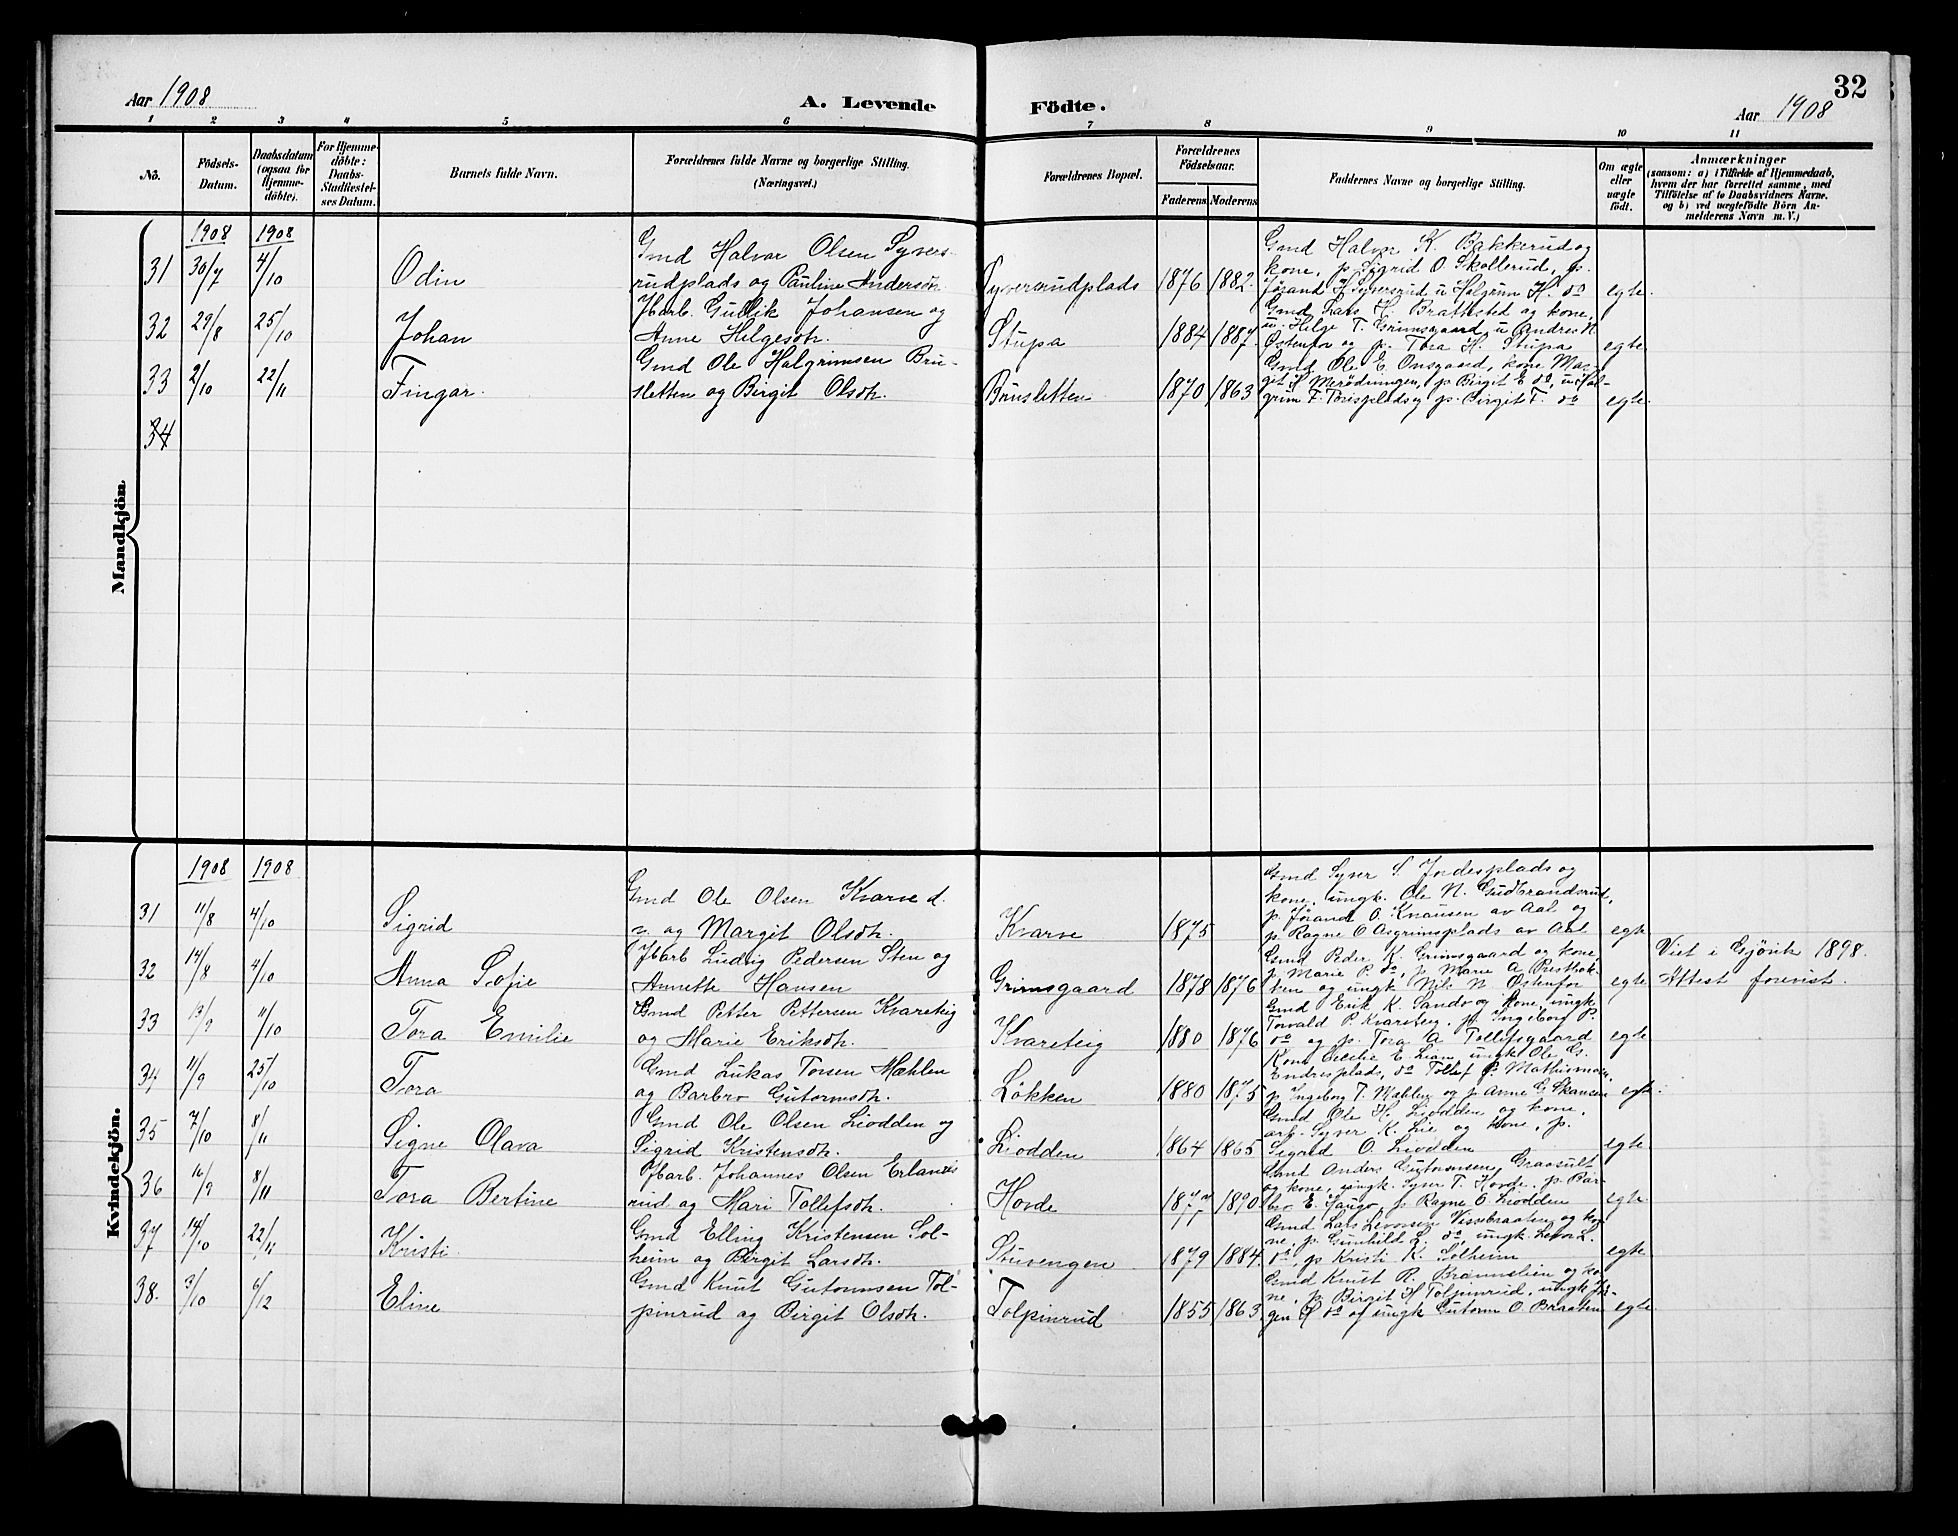 Aar 1908
A. Levende Födte.
32
Aar 1908
1 2 3 4 5 6 7 8 9 10 11
Nö.
Födsels-Datum.
Daabsdatum (ogsaa for Hjemmedöbte).
For Hjemmedöbte: Daabs-Stadfæstelses Datum.
Barnets fulde Navn.
Forældrenes fulde Navne og borgerlige Stilling. (Næringsvei.)
Forældrenes Bopæl.
Forældrenes Födselsaar.
Faderens Moderens
Faddernes Navne og borgerlige Stilling.
Om ægte eller uægte födt.
Anmærkninger
(saasom: a) i Tilfælde af Hjemmedaab, hvem der har forrettet samme, med Tilföielse af to Daabsvidners Navne. og b) ved uægtefödte Börn Anmelderens Navn m. V.)
Mandkjön
1908 1908
31 30/7 4/10 Odin
Gmd Halvor Olsen Syvers-
rudplads og Pauline Andersdtr.
Syversrudplads 1876 1882.
Gmd Halvor K. Bakkerud og
kone, p. Sigrid O. Skollerud, p.
Jørand H. Syversrud, u Halgrim H. do
egte.
32 29/8 25/10 Johan
Fbarb. Gullik Johansen og
Anne Helgesdtr.
Stupa 1884 1887.
Gmd Lars H. Brathsted og kone,
u. Helge T. Grimsgaard, u Andres N.
Østenfor og p. Tora H. Stupa
egte.
33 2/10 22/11 Fingar.
Gmd Ole Halgrimsen Bru-
sletten og Birgit Olsdtr.
Brusletten 1870 1863
Gmd Ole E. Onsgaard, kone Mar-
git S Merødningen, p Birgit E do, u Hal-
grim F. Torisplads og p. Birgit T. do
egte.
34
Kvindekjön.
1908 1908
31 11/8 4/10 Sigrid
Gmd Ole Olsen Kvarve d.
y. og Margit Olsdtr.
Kvarve 1875
Gmd Syver S. Jordesplads og
kone, ungk. Ole N. Gudbrandsrud,
p. Jørand O. Knausen av Aal og
p. Ragne O Asgrimsplads av Aal
egte
32 14/8 4/10 Anna Sofie
Fbarb Ludvig Pedersen Sten og
Annette Hansen
Grimsgaard 1878 1876
Gmd Peder K. Grimsgaard og kone,
p. Marie P. do, p Marie A Presthok-
ken og ungk Nils N Østenfor
egte
Viet i Gjøvik 1898.
Attest forevist.
33 13/9 11/10 Tora Emilie
Gmd Petter Pettersen Kvareteig
og Marie Eriksdtr.
Kvareteig 1880 1876
Gmd Erik K. Sando og kone, ungk
Torvald P. Kvareteig, p. Ingeborg P
do og p. Tora A Tollefsgaard
egte
34 11/9 25/10 Tora
Gmd Lukas Torsen Mæhlen
og Barbro Gutormsdtr.
Løkken 1880 1875
Kone Cecilie E. Lian, ungk Ole G.
Endresplads, do Tollef P. Mathismoen,
p Ingeborg T. Mæhlen og p. Anne G. Skansen
egte.
35 7/10 8/11 Signe Olava
Gmd Ole Olsen Liodden og
Sigrid Kristensdtr.
Liodden 1864 1865
Gmd Ole H. Liodden og kone,
arb. Syver K. Lie og kone, p.
Sigrid O. Liodden
egte
36 16/9 8/11 Tora Bertine
Fbarb. Johannes Olsen Erlands
rud og Mari Tollefsdtr.
Hovde 1877 1890
Gmd Anders Gutormsen Graasult
og kone, ungk. Syver T. Hovde, p. Bar-
bro E. Haugo, p. Ragne O. Liodden
egte
37 14/10 22/11 Kristi.
Gmd Elling Kristensen Sol-
heim og Birgit Larsdtr.
Stuvengen 1879 1884.
Gmd Lars Levorsen Vissebraaten og ko-
ne, p. Gunhild L. do, ungk. Levor L.
do, p Kristi K. Solheim
egte
38. 3/10 6/12 Eline
Gmd Knut Gutormsen Tol-
pinrud og Birgit Olsdtr.
Tolpinrud 1855 1863
Gmd Knut R. Brammelien og ko-
ne, p Birgit H Tolpinrud, ungk Jør-
gen H do og ungk Gutorm O. Braaten
egte